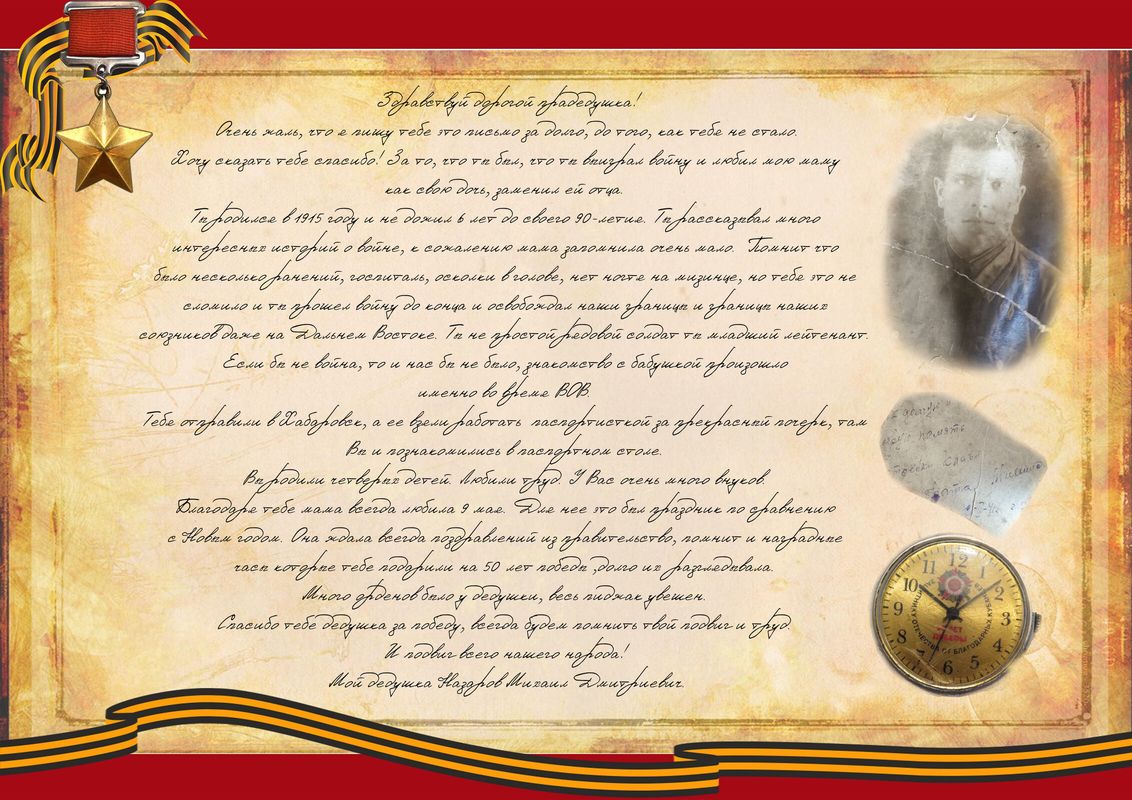 Здравствуй дорогой прадедушка!
Очень жаль, что я пишу тебе это письмо за долго, до того, как тебе не стало.
Хочу сказать тебе спасибо! За то, что ты был, что ты выиграл войну и любил мою маму
как свою дочь, заменил ей отца.
Ты родился в 1915 году и не дожил 6 лет до своего 90-летия. Ты рассказывал много
интересных историй о войне, к сожалению мама запомнила очень мало. Помнит что
было несколько ранений, госпиталь, осколки в голове, нет ногтя на мизинце, но тебя это не
сломило и ты прошел войну до конца и освобождал наши границы и границы наших
союзников даже на Дальнем Востоке. Ты не простой рядовой солдат ты младший лейтенант.
Если бы не война, то и нас бы не было, знакомство с бабушкой произошло
именно во время ВОВ.
Тебя отправили в Хабаровск, а ее взяли работать паспортисткой за прекрасный почерк, там
Вы и познакомились в паспортном столе.
Вы родили четверых детей. Любили труд. У Вас очень много внуков.
Благодаря тебе мама всегда любила 9 мая. Для нее это был праздник по сравнению
с Новым годом. Она ждала всегда поздравлений из правительство, помнит и наградные
часы которые тебе подарили на 50 лет победы ,долго их разглядывала.
Много орденов было у дедушки, весь пиджак увешен.
Спасибо тебе дедушка за победу, всегда будем помнить твой подвиг и труд.
И подвиг всего нашего народа!
Мой дедушка Назаров Михаил Дмитриевич.
память
12
1
2
3
4
5
6
7
8
9
10
11
ЛЕТ
ПОБЕДЫ
ЗАЩИТНИКУ ОТЕЧЕСТВА ОТ БЛАГОДАРНЫХ